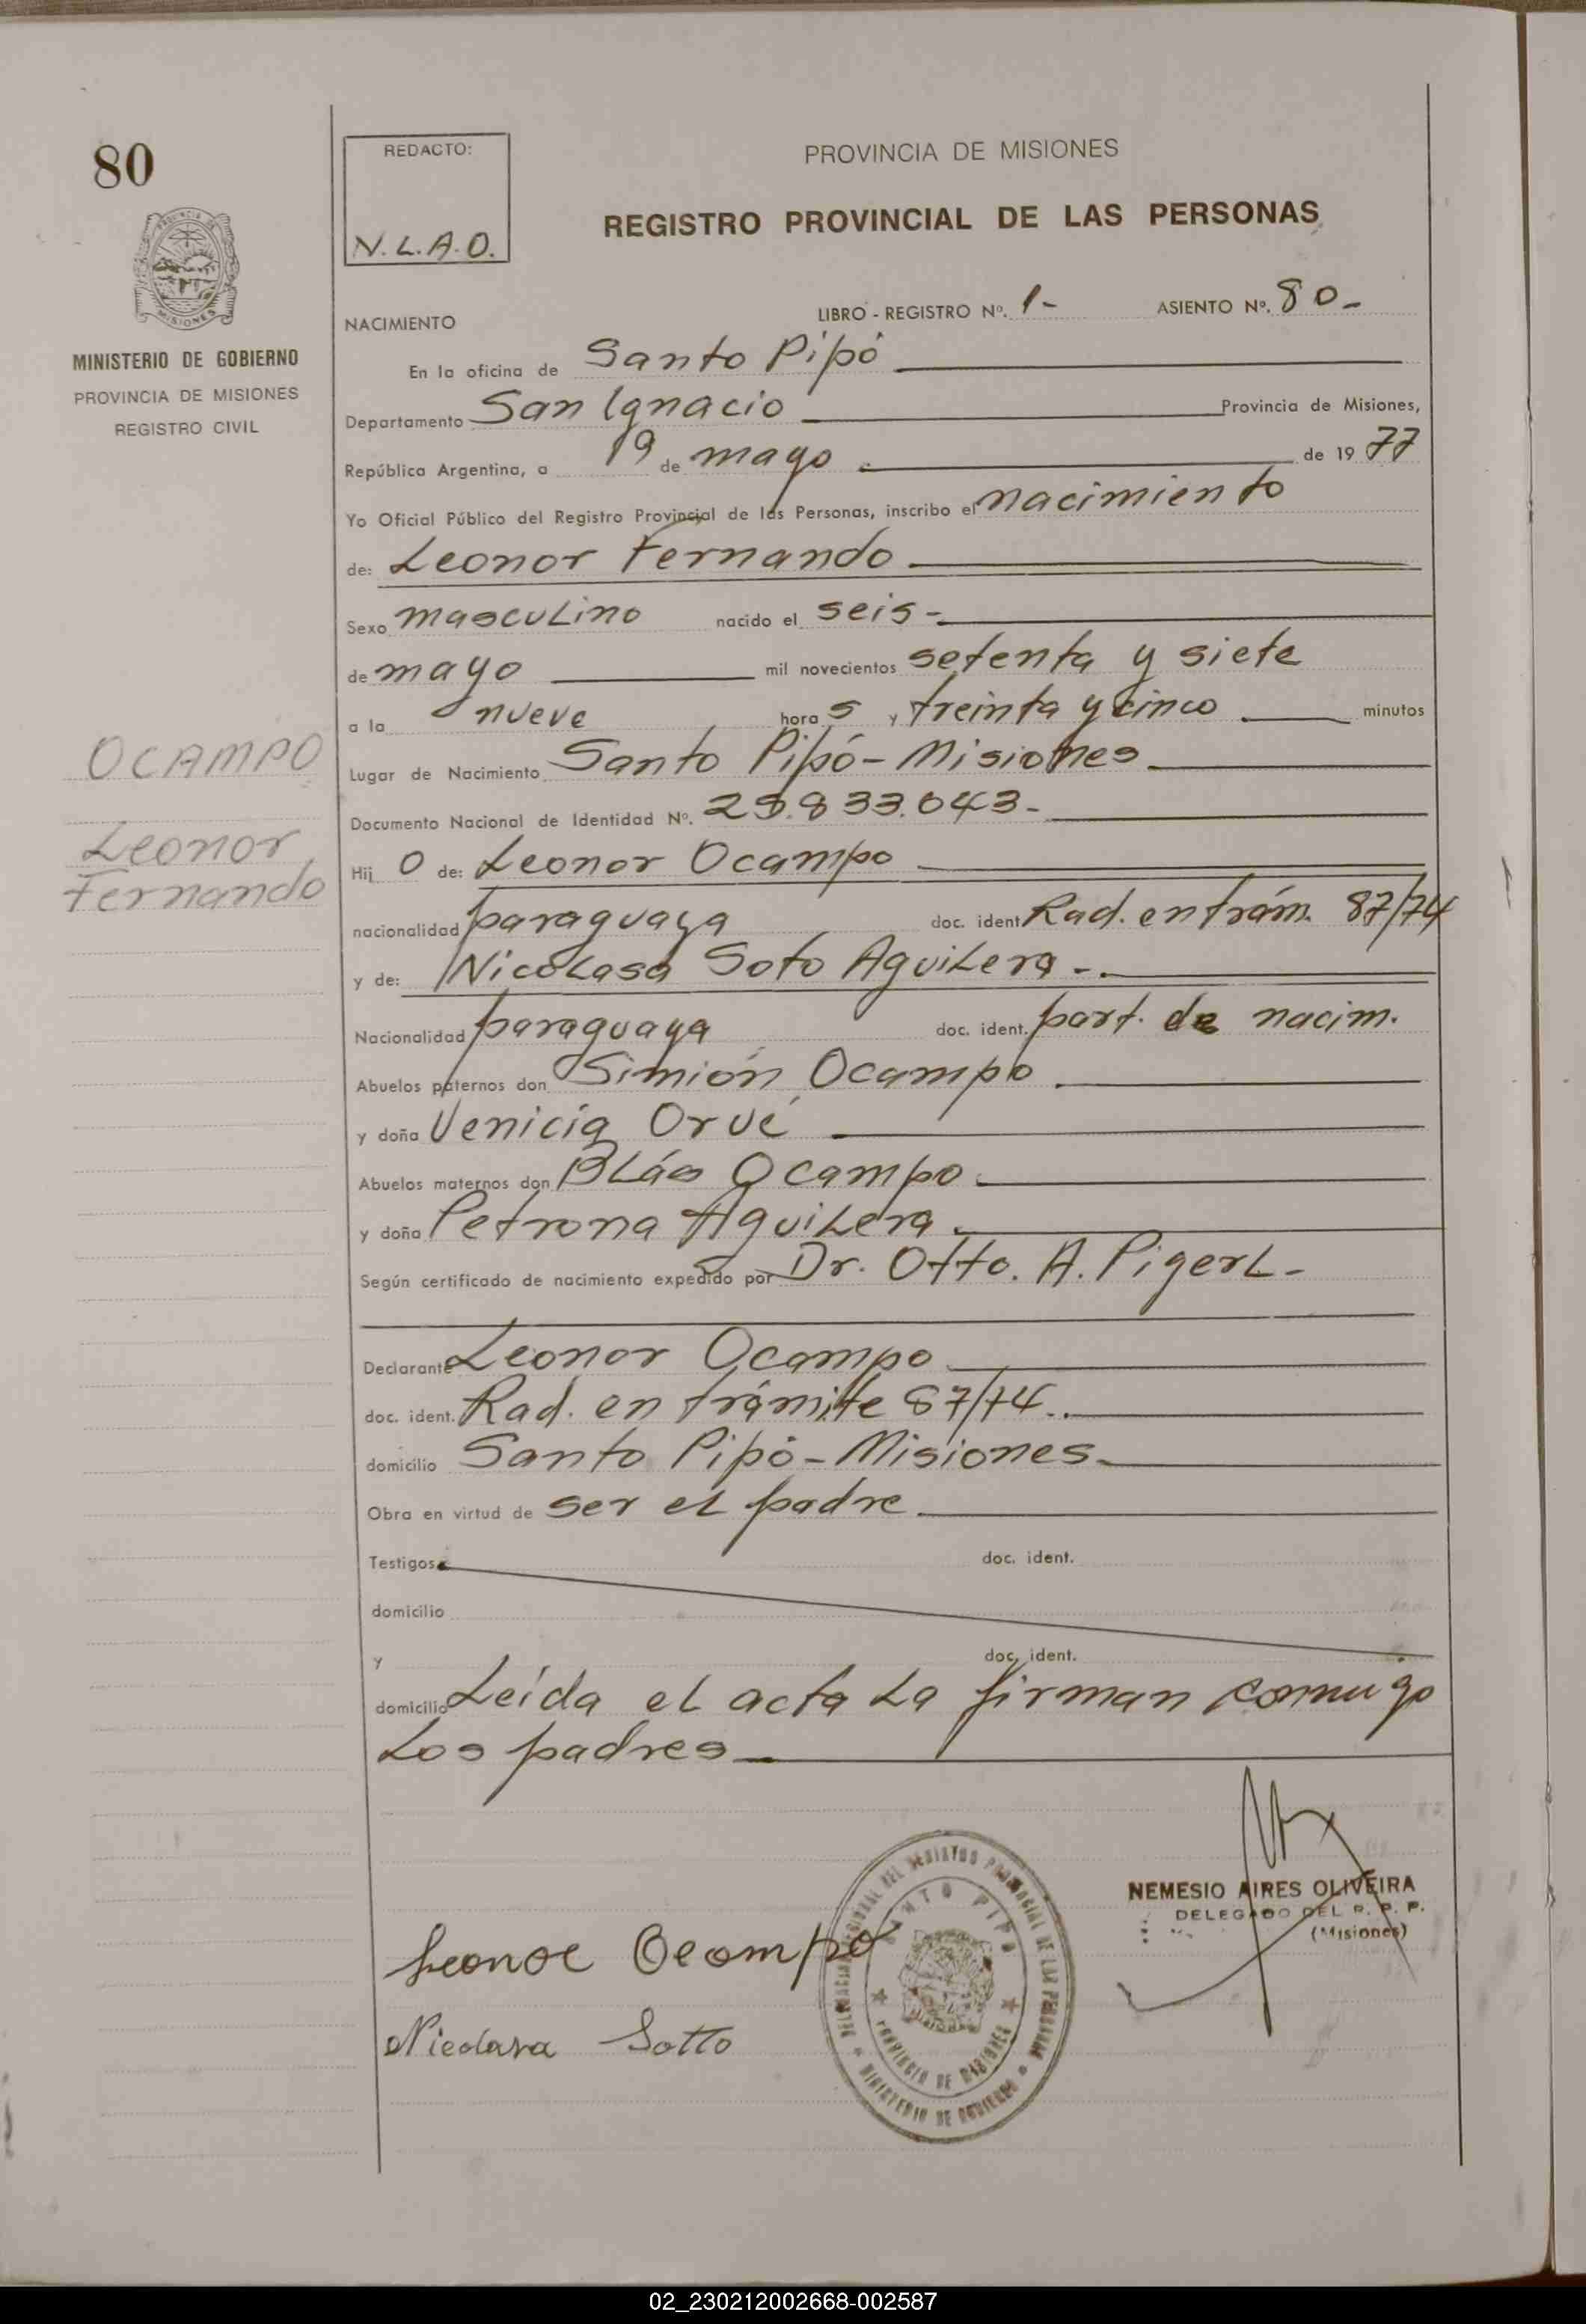 80
REDACTO:
N.L.A.O.
PROVINCIA DE MISIONES
REGISTRO PROVINCIAL DE LAS PERSONAS
MINISTERIO DE GOBIERNO
PROVINCIA DE MISIONES
REGISTRO CIVIL
NACIMIENTO
LIBRO - REGISTRO Nº. 1- ASIENTO Nº. 80-
En la oficina de Santo Pipó
Departamento San Ignacio Provincia de Misiones,
República Argentina, a 19 de mayo de 19 77
Yo Oficial Público del Registro Provincial de las Personas, inscribo el nacimiento
de: Leonor Fernando
Sexo masculino nacido el seis-
de mayo mil novecientos setenta y siete
a la nueve hora s y treinta y cinco minutos
Lugar de Nacimiento Santo Pipó - Misiones
OCAMPO
Leonor
Fernando
Documento Nacional de Identidad Nº. .833.043-
Hij o de: Leonor Ocampo
nacionalidad paraguaya doc. ident Rad. en trám. 87/74
y de: Nicolasa Soto Aguilera-.
Nacionalidad paraguaya doc. ident. part. de nacim.
Abuelos paternos don Simión Ocampo
y doña Venicia Orué
Abuelos maternos don Blás Ocampo
y doña Petrona Aguilera
Según certificado de nacimiento expedido por Dr. Otto. A. Pigerl-
Declarante Leonor Ocampo
doc. ident. Rad. en trámite 87/74.
domicilio Santo Pipó - Misiones
Obra en virtud de ser el padre
Testigos doc. ident.
domicilio
y doc. ident.
domicilio Leída el acta la firman conmigo
los padres
NEMESIO AIRES OLIVEIRA
DELEGADO DEL R. P. P.
(Misiones)
SANTO PIPO
PROVINCIA DE MISIONES
MINISTERIO DE GOBIERNO
Leonor Ocampo
Nicolasa Sotto
02_230212002668-002587